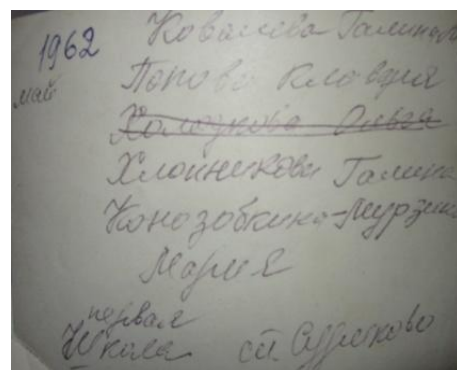 1962
май
Ковалева Галина
Попова Клавдия
Ольга
Галина
Конозобкина-Мурзина
Мария
первая
Школа ст. Сурково